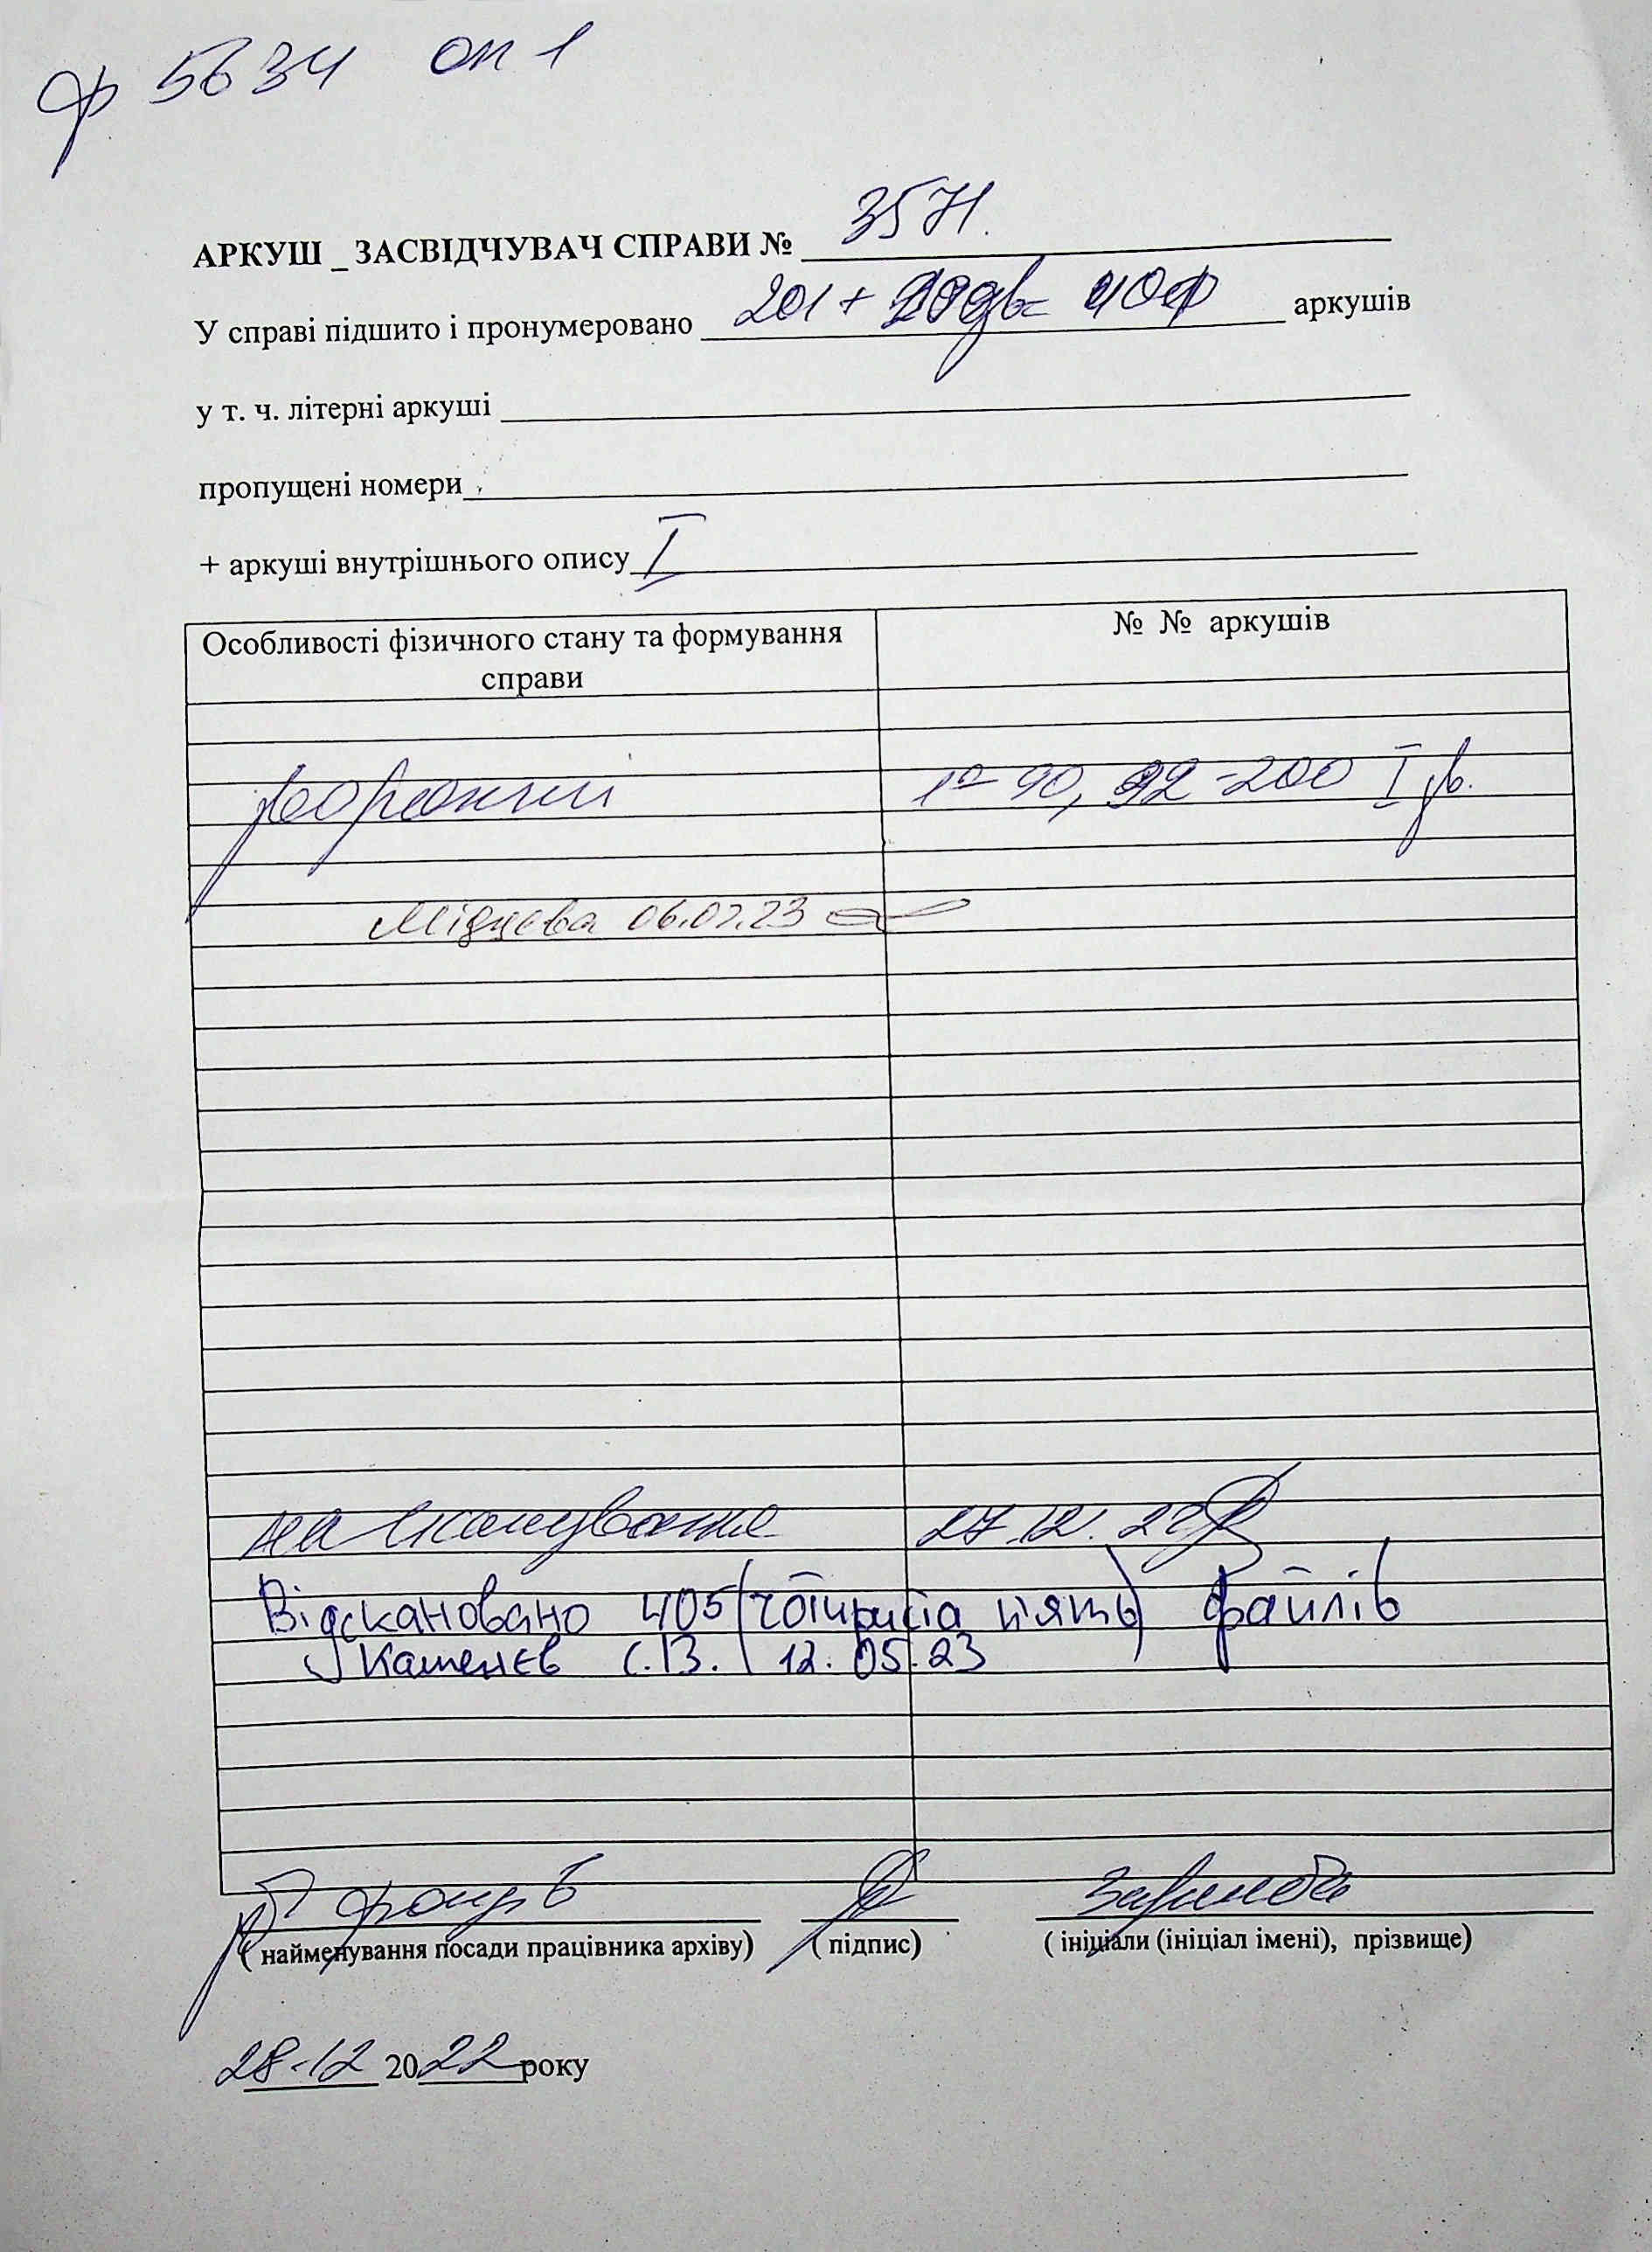 ф 5634 оп 1
АРКУШ _ ЗАСВІДЧУВАЧ СПРАВИ № 3571.
У справі підшито і пронумеровано 201 + аркушів
у т. ч. літерні аркуші
пропущені номери
+ аркуші внутрішнього опису I
Особливості фізичного стану та формування справи
№ № аркушів
порожній
90, 92-200 I
06.02.23
на сканування 27.12.22
Відскановано 405 (чотириста п'ять) файлів
Каменєв С.В. 12.05.23
фондів
( найменування посади працівника архіву) ( підпис) ( ініціали (ініціал імені), прізвище)
28.12 2022 року